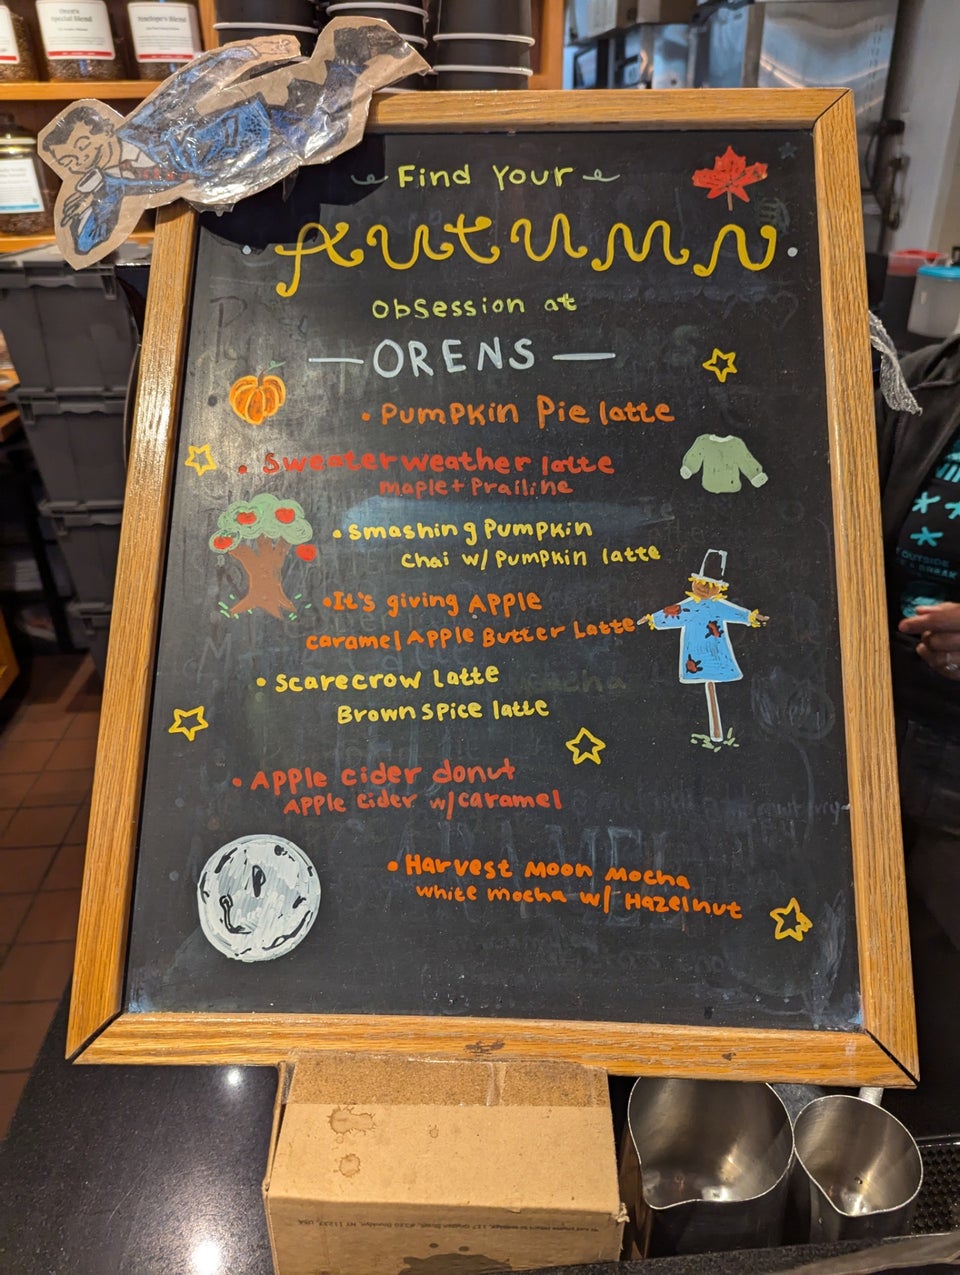 Oren's
Special Blend
Penelope's Blend
Find Your
Autumn
obsession at
— ORENS —
• Pumpkin Pie latte
• Sweater weather latte
maple + Prailine
• Smashing Pumpkin
chai w/ Pumpkin latte
• It's giving Apple
caramel Apple Butter Latte
• Scarecrow latte
Brown spice latte
• Apple cider donut
Apple cider w/caramel
• Harvest Moon Mocha
white mocha w/ Hazelnut
OUTSIDE
BREAK